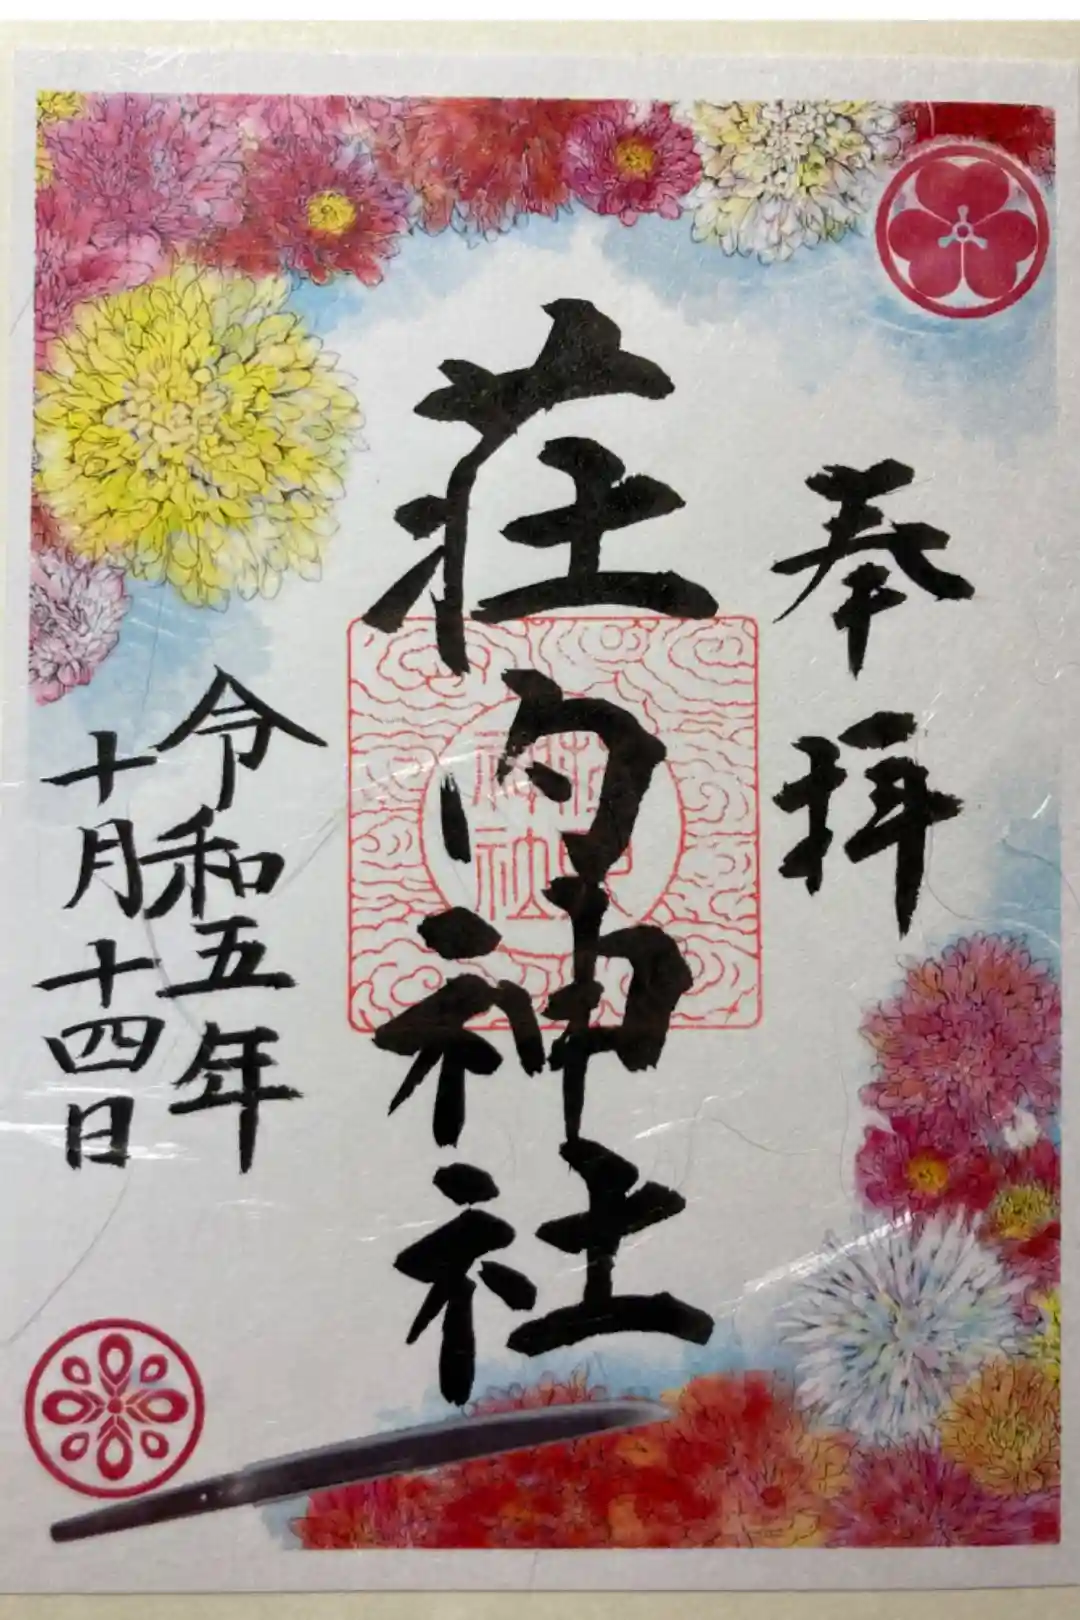 奉拝
荘内神社
荘内
神社
令和五年
十月十四日